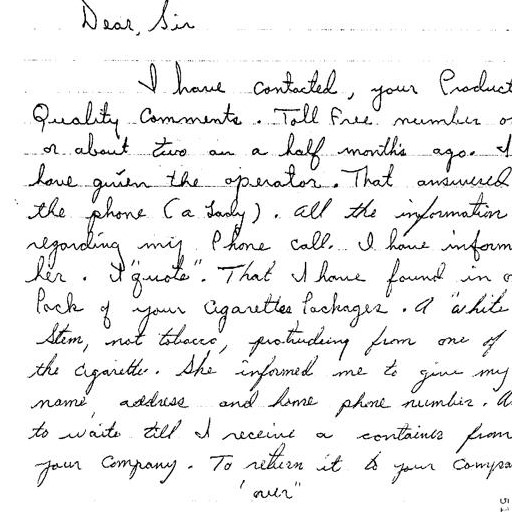 Dear, Sir
I have contacted, your Product
Quality Comments. Toll Free number o
or about two an a half month's ago. I
have given the operator. That answered
the phone (a Lady). All the information
regarding my Phone call. I have inform
her. I "quote". That I have found in a
Pack of your Cigarettes Packages. A "white
Stem, not tobacco, protruding from one of
the Cigarette. She informed me to give my
name, address and home phone number. A
to waite till I receive a container from
your Company. To return it to your Compa
"over"
51